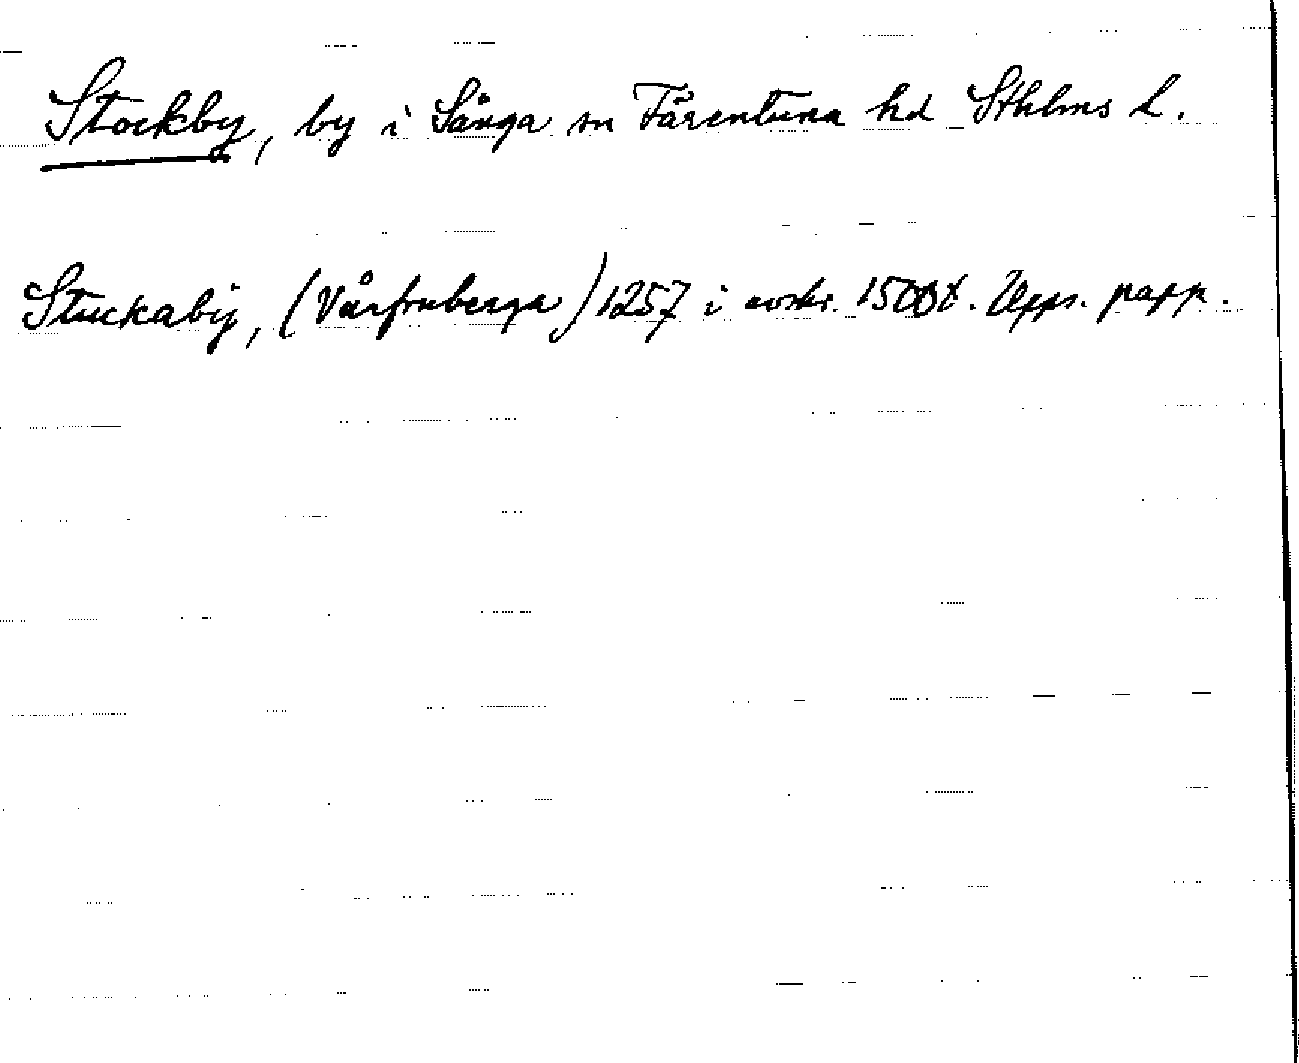 Stockby, by i Sånga sn Färentuna hd Sthlms L.
Stuckabij, (Vårfruberga) 1257 i avskr. 1500t. Upps. papp.